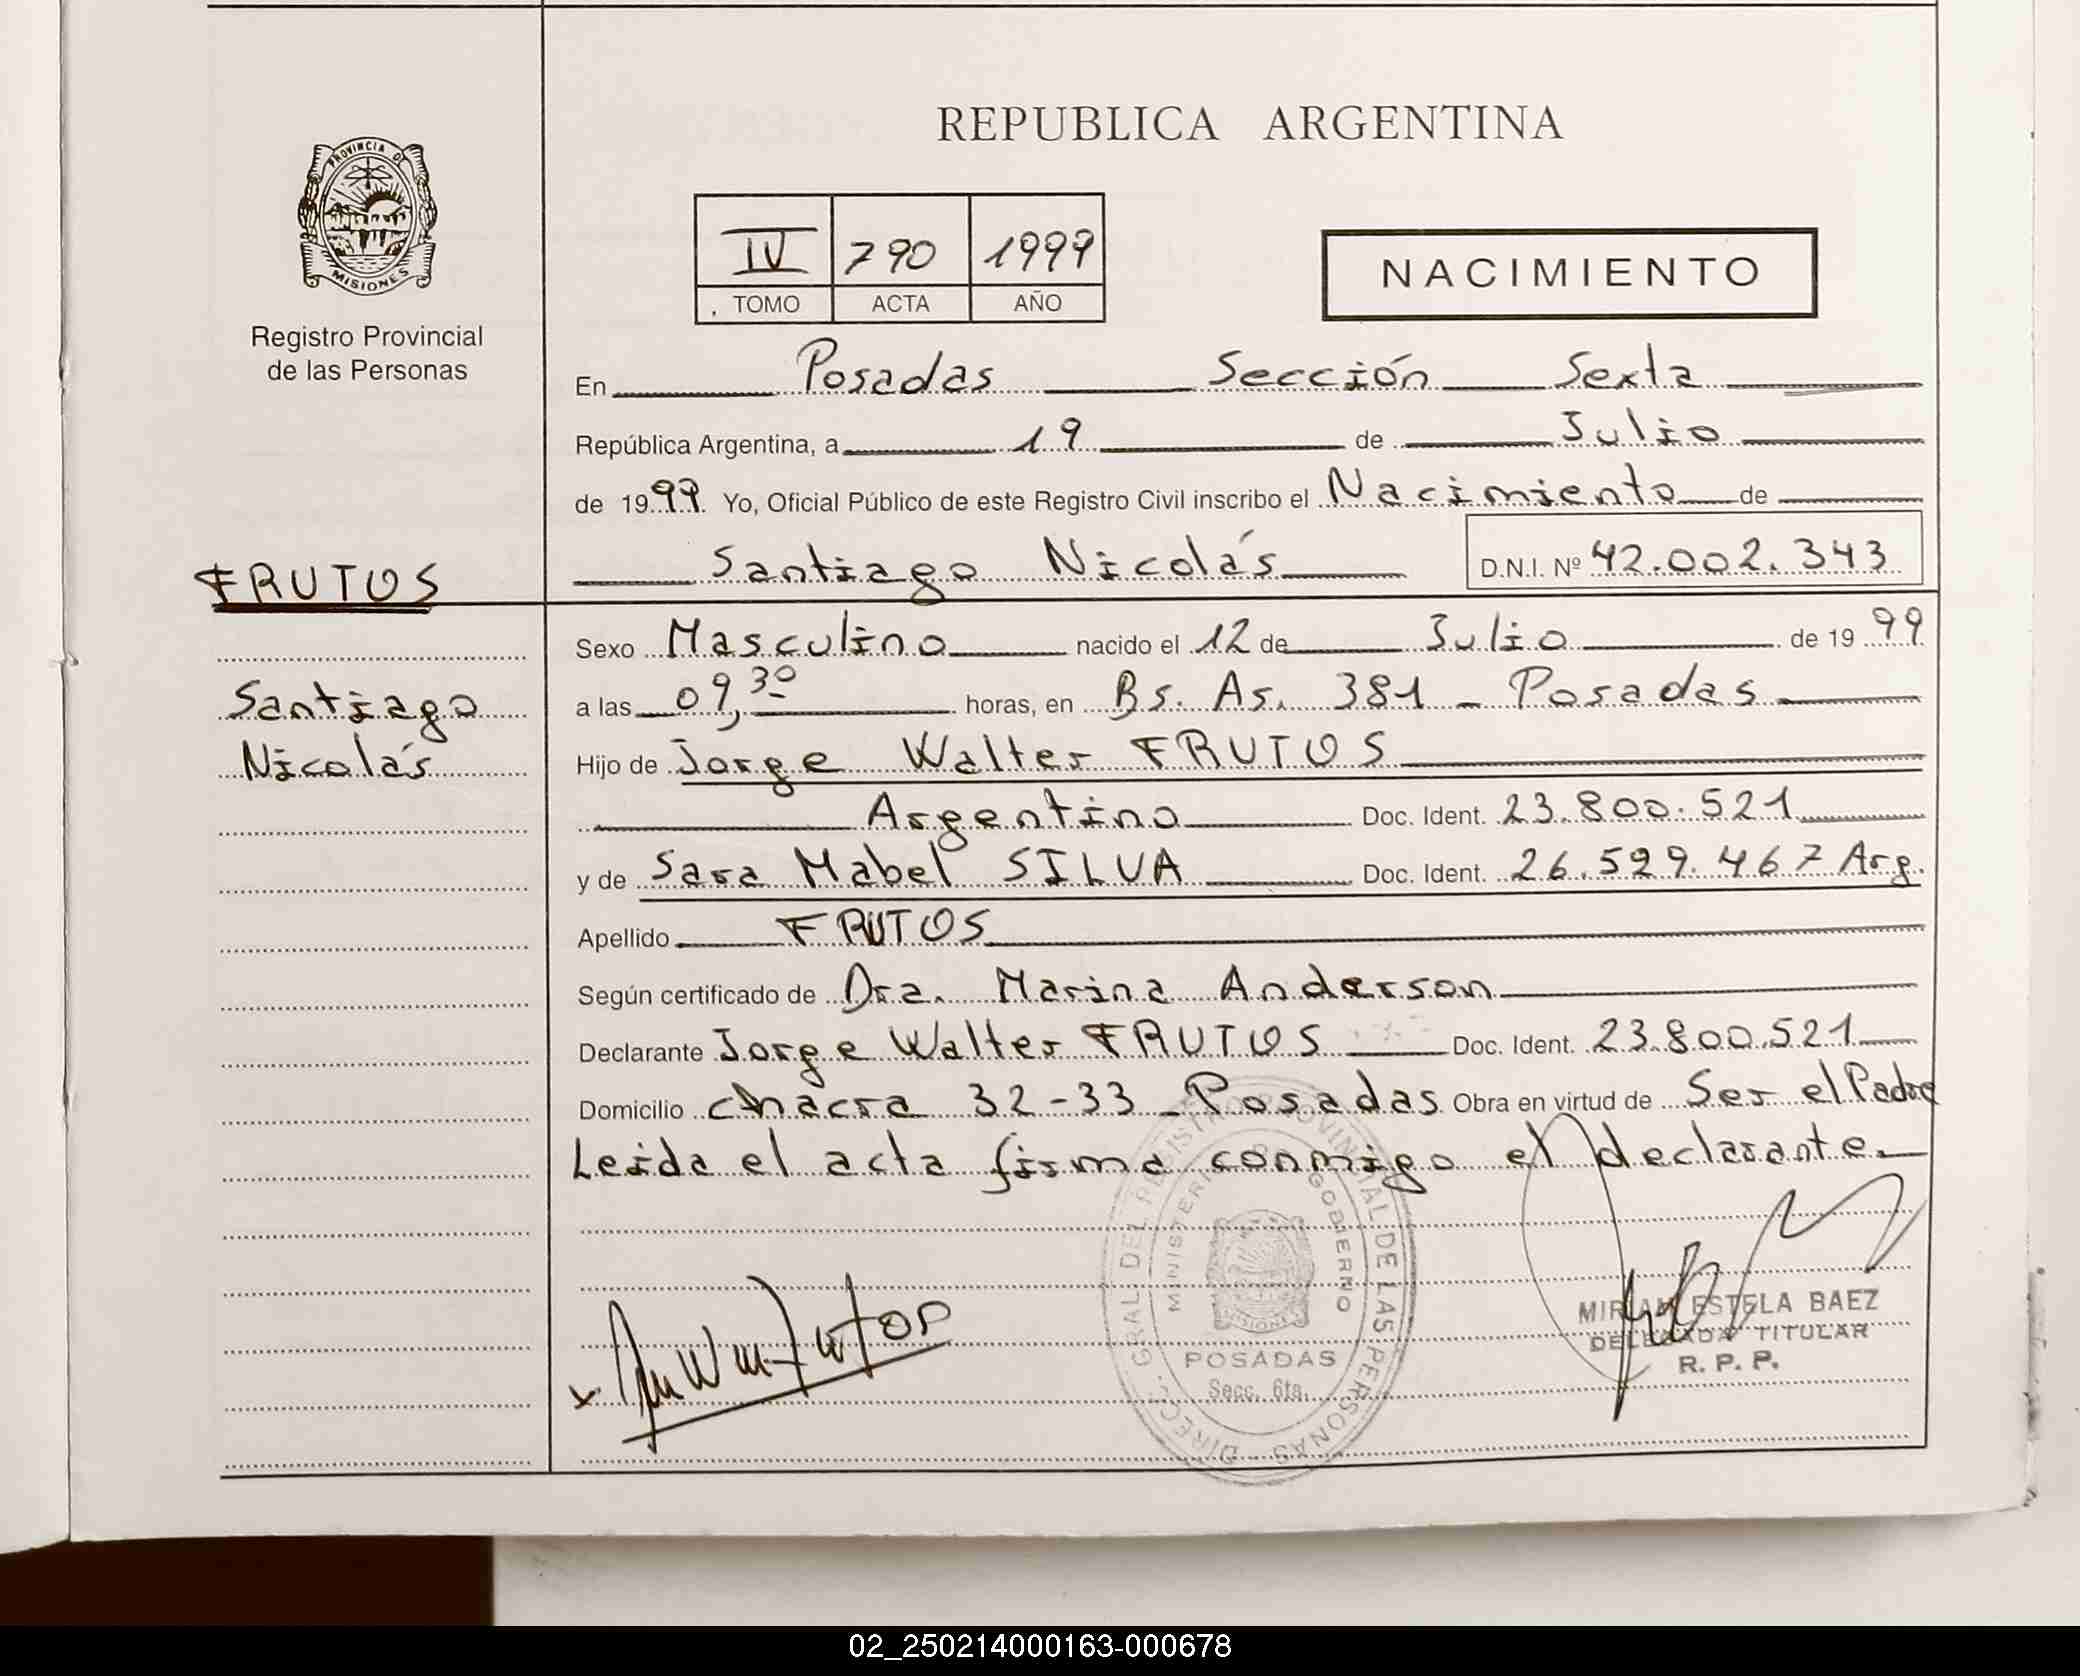 REPUBLICA ARGENTINA
PROVINCIA DE
MISIONES
Registro Provincial
de las Personas
IV 790 1999
TOMO ACTA AÑO
NACIMIENTO
En Posadas Sección Sexta
República Argentina, a 19 de Julio
de 1999 Yo, Oficial Público de este Registro Civil inscribo el Nacimiento de
Santiago Nicolás D.N.I. Nº 42.002.343
FRUTOS
Santiago
Nicolás
Sexo Masculino nacido el 12 de Julio de 1999
a las 09,30 horas, en Bs. As. 381 - Posadas
Hijo de Jorge Walter FRUTOS
Argentino Doc. Ident. 23.800.521
y de Sara Mabel SILVA Doc. Ident. 26.529.467 Arg.
Apellido FRUTOS
Según certificado de Dra. Marina Anderson
Declarante Jorge Walter FRUTOS Doc. Ident. 23.800.521
Domicilio chacra 32-33 - Posadas Obra en virtud de Ser el Padre
Leida el acta firma conmigo el declarante.
DIRECC. GRAL DEL REGISTRO PROVINCIAL DE LAS PERSONAS
MINISTERIO GOBIERNO
POSADAS
Secc. 6ta.
MIRIAM ESTELA BAEZ
DELEGADA TITULAR
R. P. P.
02_250214000163-000678